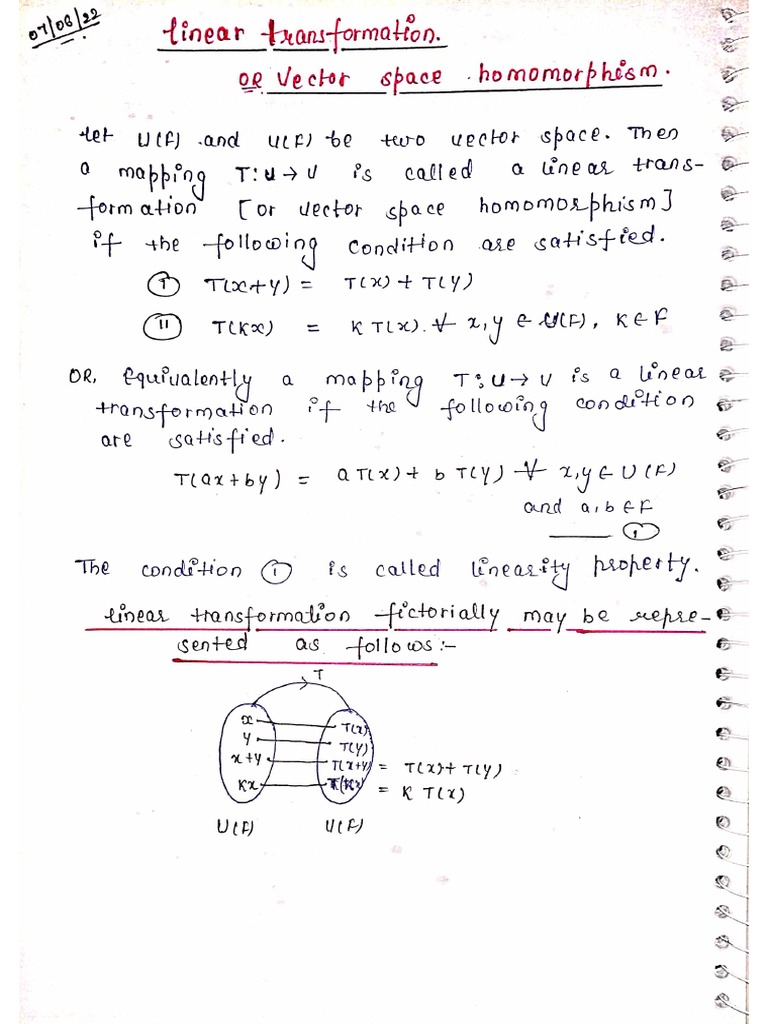 07/06/22
linear transformation.
OR Vector space homomorphism.
let U(F) and U(F) be two vector space. Then
a mapping T: U → V is called a linear trans-
formation [or vector space homomorphism]
if the following condition are satisfied.
(I) T(x+y) = T(x) + T(y)
(II) T(Kx) = K T(x). ∀ x, y ∈ U(F), K ∈ F
OR, Equivalently a mapping T: U → V is a linear
transformation if the following condition
are satisfied.
T(ax+by) = a T(x) + b T(y) ∀ x, y ∈ U(F)
and a, b ∈ F
—— (1)
The condition (1) is called linearity property.
linear transformation fictorially may be repre-
sented as follows:-
T
x T(x)
y T(y)
x+y T(x+y) = T(x) + T(y)
Kx T(Kx) = K T(x)
U(F) U(F)